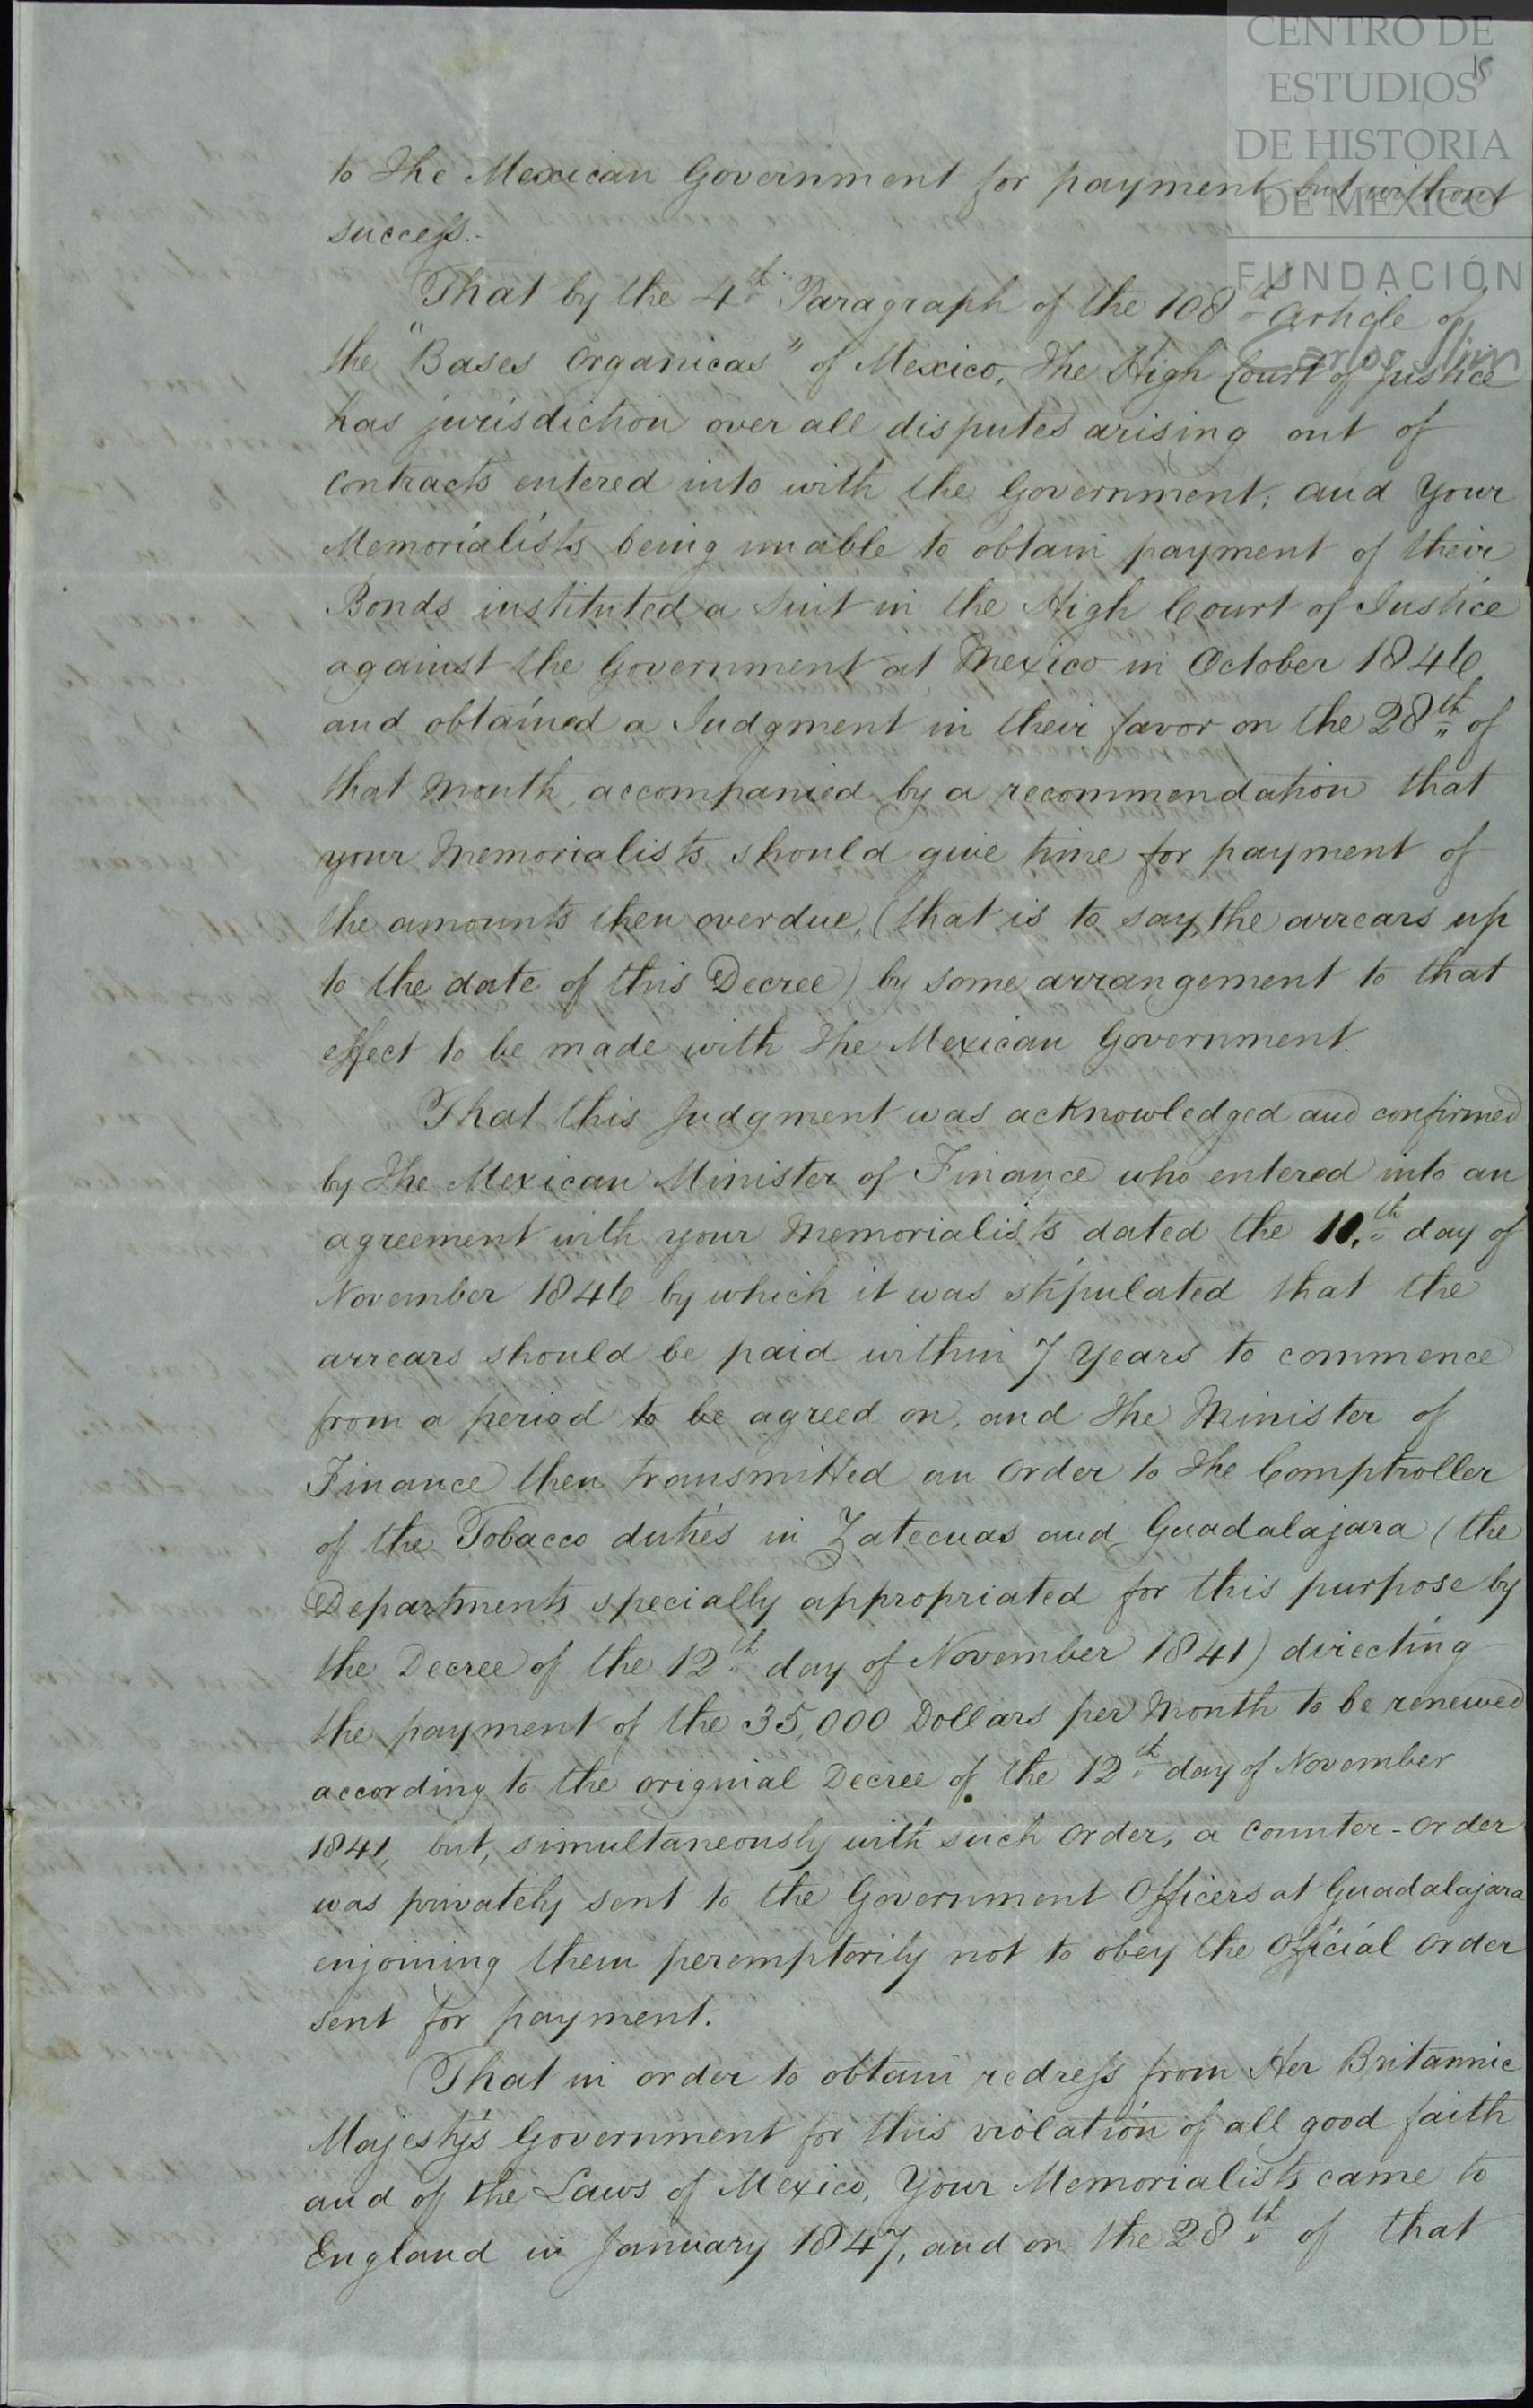 CENTRO DE
ESTUDIOS
DE HISTORIA
DE MÉXICO
FUNDACIÓN
Carlos Slim
15
to the Mexican Government for payment, but without
success.-
That by the 4th Paragraph of the 108th Article of
the "Bases Organicas" of Mexico, the High Court of Justice
has jurisdiction over all disputes arising out of
contracts entered into with the Government; and Your
Memorialists being unable to obtain payment of their
Bonds instituted a Suit in the High Court of Justice
against the Government at Mexico in October 1846
and obtained a Judgment in their favor on the 28th of
that Month, accompanied by a recommendation that
your Memorialists should give time for payment of
the amounts then overdue, (that is to say, the arrears up
to the date of this Decree) by some arrangement to that
effect to be made with the Mexican Government.
That this Judgment was acknowledged and confirmed
by the Mexican Minister of Finance who entered into an
agreement with your Memorialists dated the 10th day of
November 1846 by which it was stipulated that the
arrears should be paid within 7 Years to commence
from a period to be agreed on, and the Minister of
Finance then transmitted an Order to the Comptroller
of the Tobacco duties in Zatecuas and Guadalajara (the
Departments specially appropriated for this purpose by
the Decree of the 12th day of November 1841) directing
the payment of the 35,000 Dollars per Month to be renewed
according to the original Decree of the 12th day of November
1841, but, simultaneously with such Order, a Counter-Order
was privately sent to the Government Officers at Guadalajara
enjoining them peremptorily not to obey the Official Order
sent for payment.
That in order to obtain redress from Her Britannic
Majesty's Government for this violation of all good faith
and of the Laws of Mexico, Your Memorialists came to
England in January 1847, and on the 28th of that